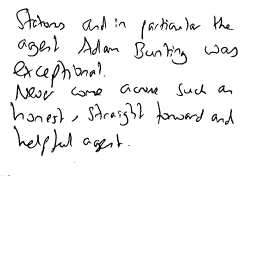 Statons and in particular the
agent Adam Bunting was
exceptional.
Never come across such an
honest, straight forward and
helpful agent.